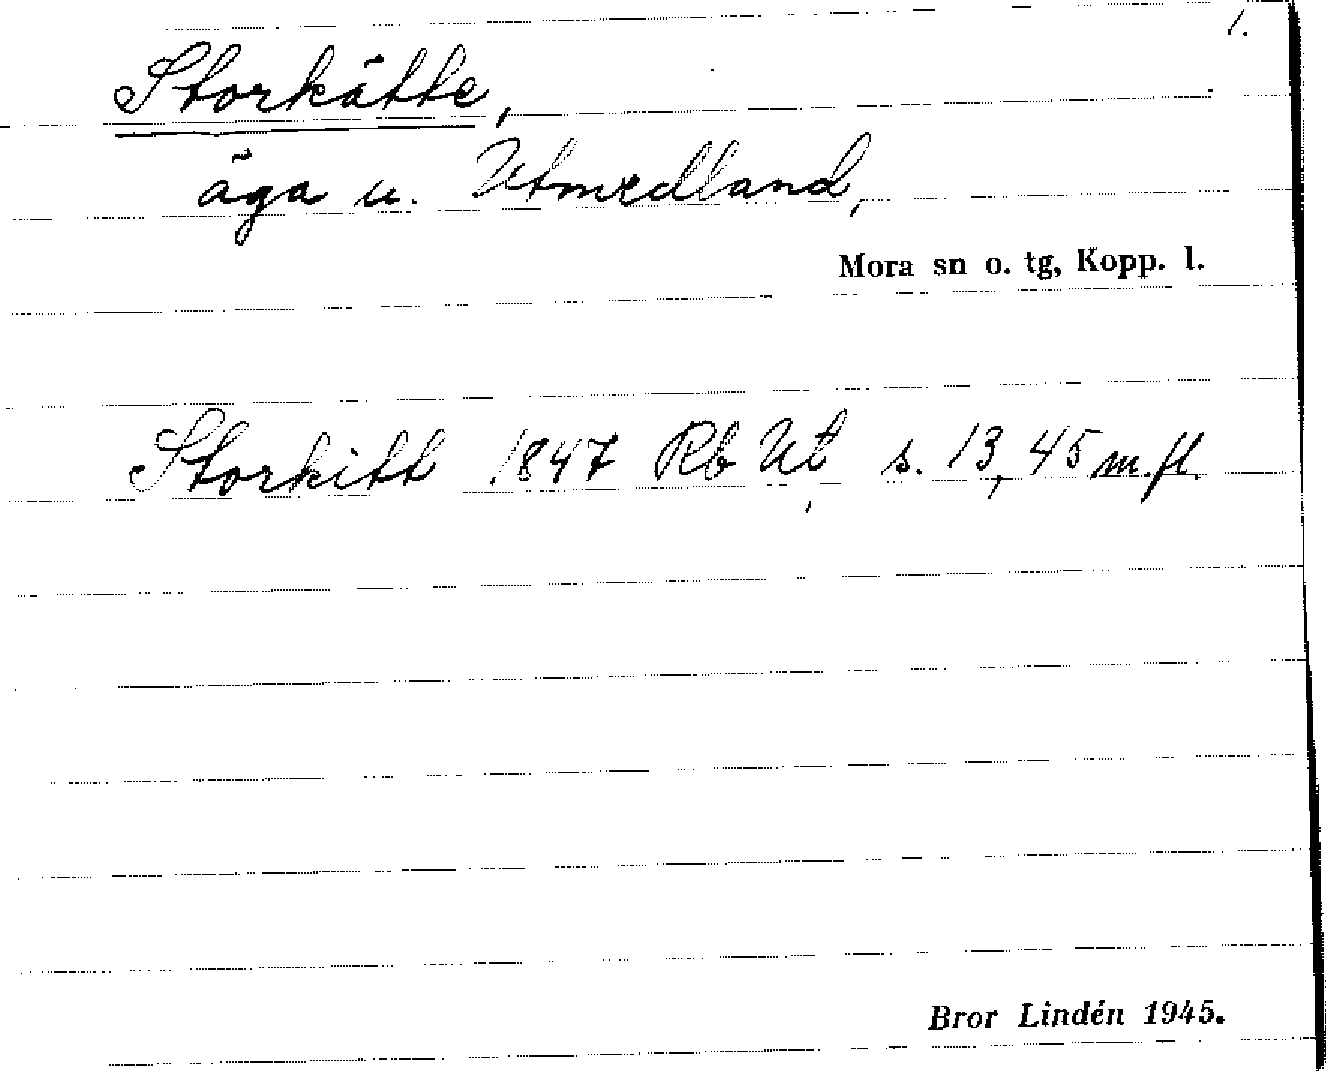 1.
Storkätte,
äga u. Utmedland,
Mora sn o. tg, Kopp. l.
Storkitt 1847 Rb Ut, s. 13, 45 m.fl.
Bror Lindén 1945.